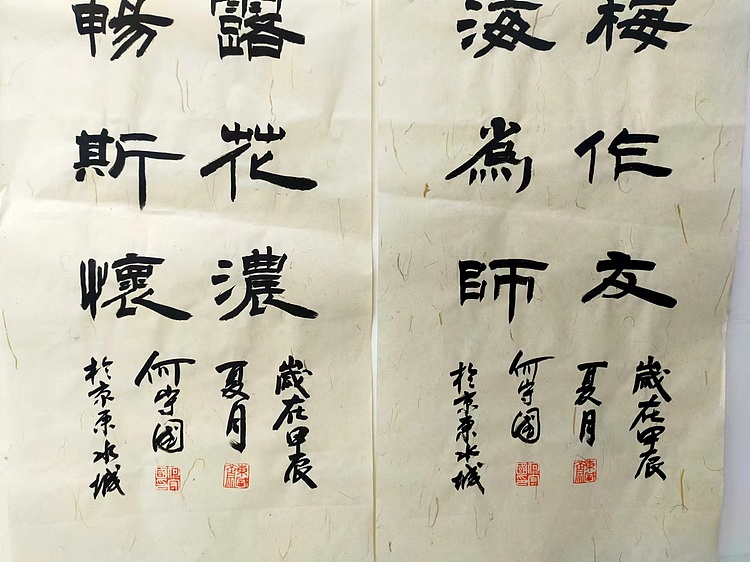 梅作友
海為師
歲在甲辰
夏月
何守國
於京東水城
露花濃
暢斯懷
歲在甲辰
夏月
何守國
於京東水城